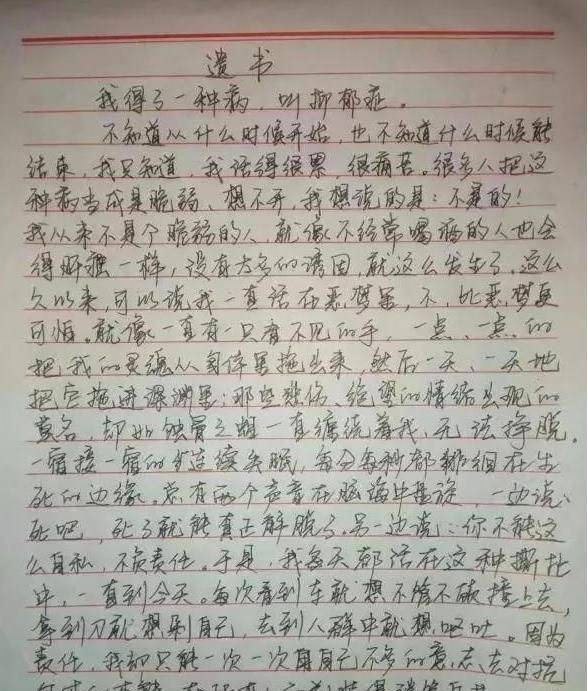 遗书
我得了一种病，叫抑郁症。
不知道从什么时候开始，也不知道什么时候能
结束，我只知道，我活得很累，很痛苦。很多人把这
种病当成是脆弱、想不开，我想说的是：不是的！
我从来不是个脆弱的人，就像不经常喝酒的人也会
得肝癌一样，没有太多的诱因，就这么发生了。这么
久以来，可以说我一直活在恶梦里，不，比恶梦更
可怕。就像一直有一只看不见的手，一点、一点的
把我的灵魂从身体里拖出来，然后一天、一天地
把它拖进深渊里；那些悲伤、绝望的情绪出现的
莫名，却如蚀骨之蛆一直缠绕着我，无法挣脱。
一宿接一宿的连续失眠，每分每秒都徘徊在生
死的边缘。总有两个声音在脑海中盘旋，一边说：
死吧，死了就能真正解脱了。另一边说：你不能这
么自私，不负责任。于是，我每天都活在这种撕扯
中，一直到今天。每次看到车就想不管不顾撞上去，
拿到刀就想剁自己，去到人群中就想呕吐。因为
责任，我却只能一次一次用自己不多的意志去对抗